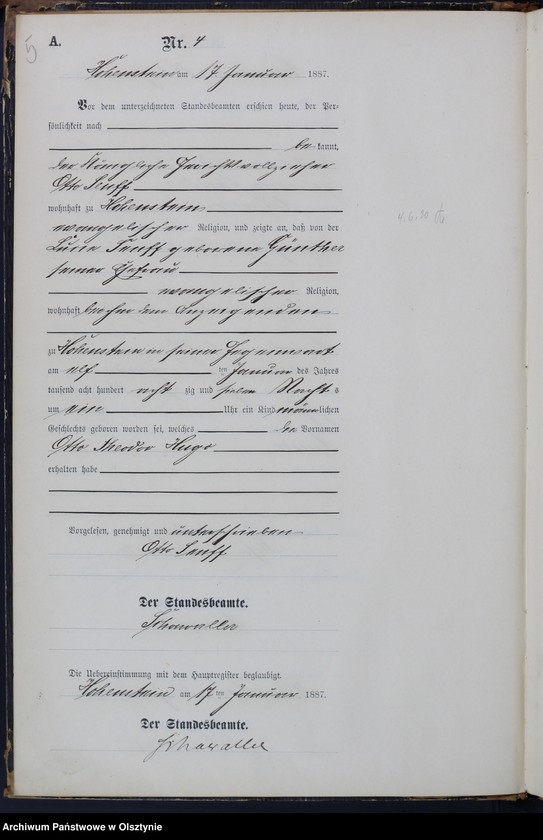 5
A.
Nr. 4
Hohenstein am 17 Januar 1887.
Vor dem unterzeichneten Standesbeamten erschien heute, der Per-
sönlichkeit nach
be kannt,
der Königliche Gerichtsvollzieher
Otto Senff
wohnhaft zu Hohenstein
evangelischer Religion, und zeigte an, daß von der
Senff geborene Günther
seiner Ehefrau
evangelischer Religion,
wohnhaft bei dem Anzeigenden
zu Hohenstein in seiner Gegenwart
am elf ten Januar des Jahres
tausend acht hundert acht zig und sieben Nacht s
um ein Uhr ein Kind männ lichen
Geschlechts geboren worden sei, welches die Vornamen
Otto Theodor Hugo
erhalten habe
Vorgelesen, genehmigt und unterschrieben
Otto Senff
Der Standesbeamte.
Schawaller
Die Uebereinstimmung mit dem Hauptregister beglaubigt.
Hohenstein am 17 ten Januar 1887.
Der Standesbeamte.
Schawaller
Archiwum Państwowe w Olsztynie